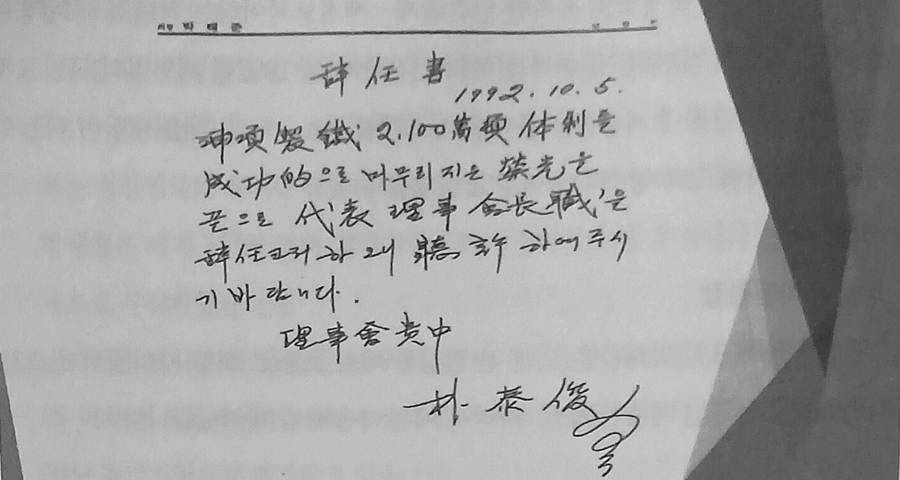 박태준
辞任書
1992. 10. 5.
浦項製鐵 2,100萬噸 体制를
成功的으로 마무리지은 榮光을
끝으로 代表理事 会長職을
辞任코저 하오니 聽許하여주시
기 바랍니다.
理事會 貴中
朴泰俊